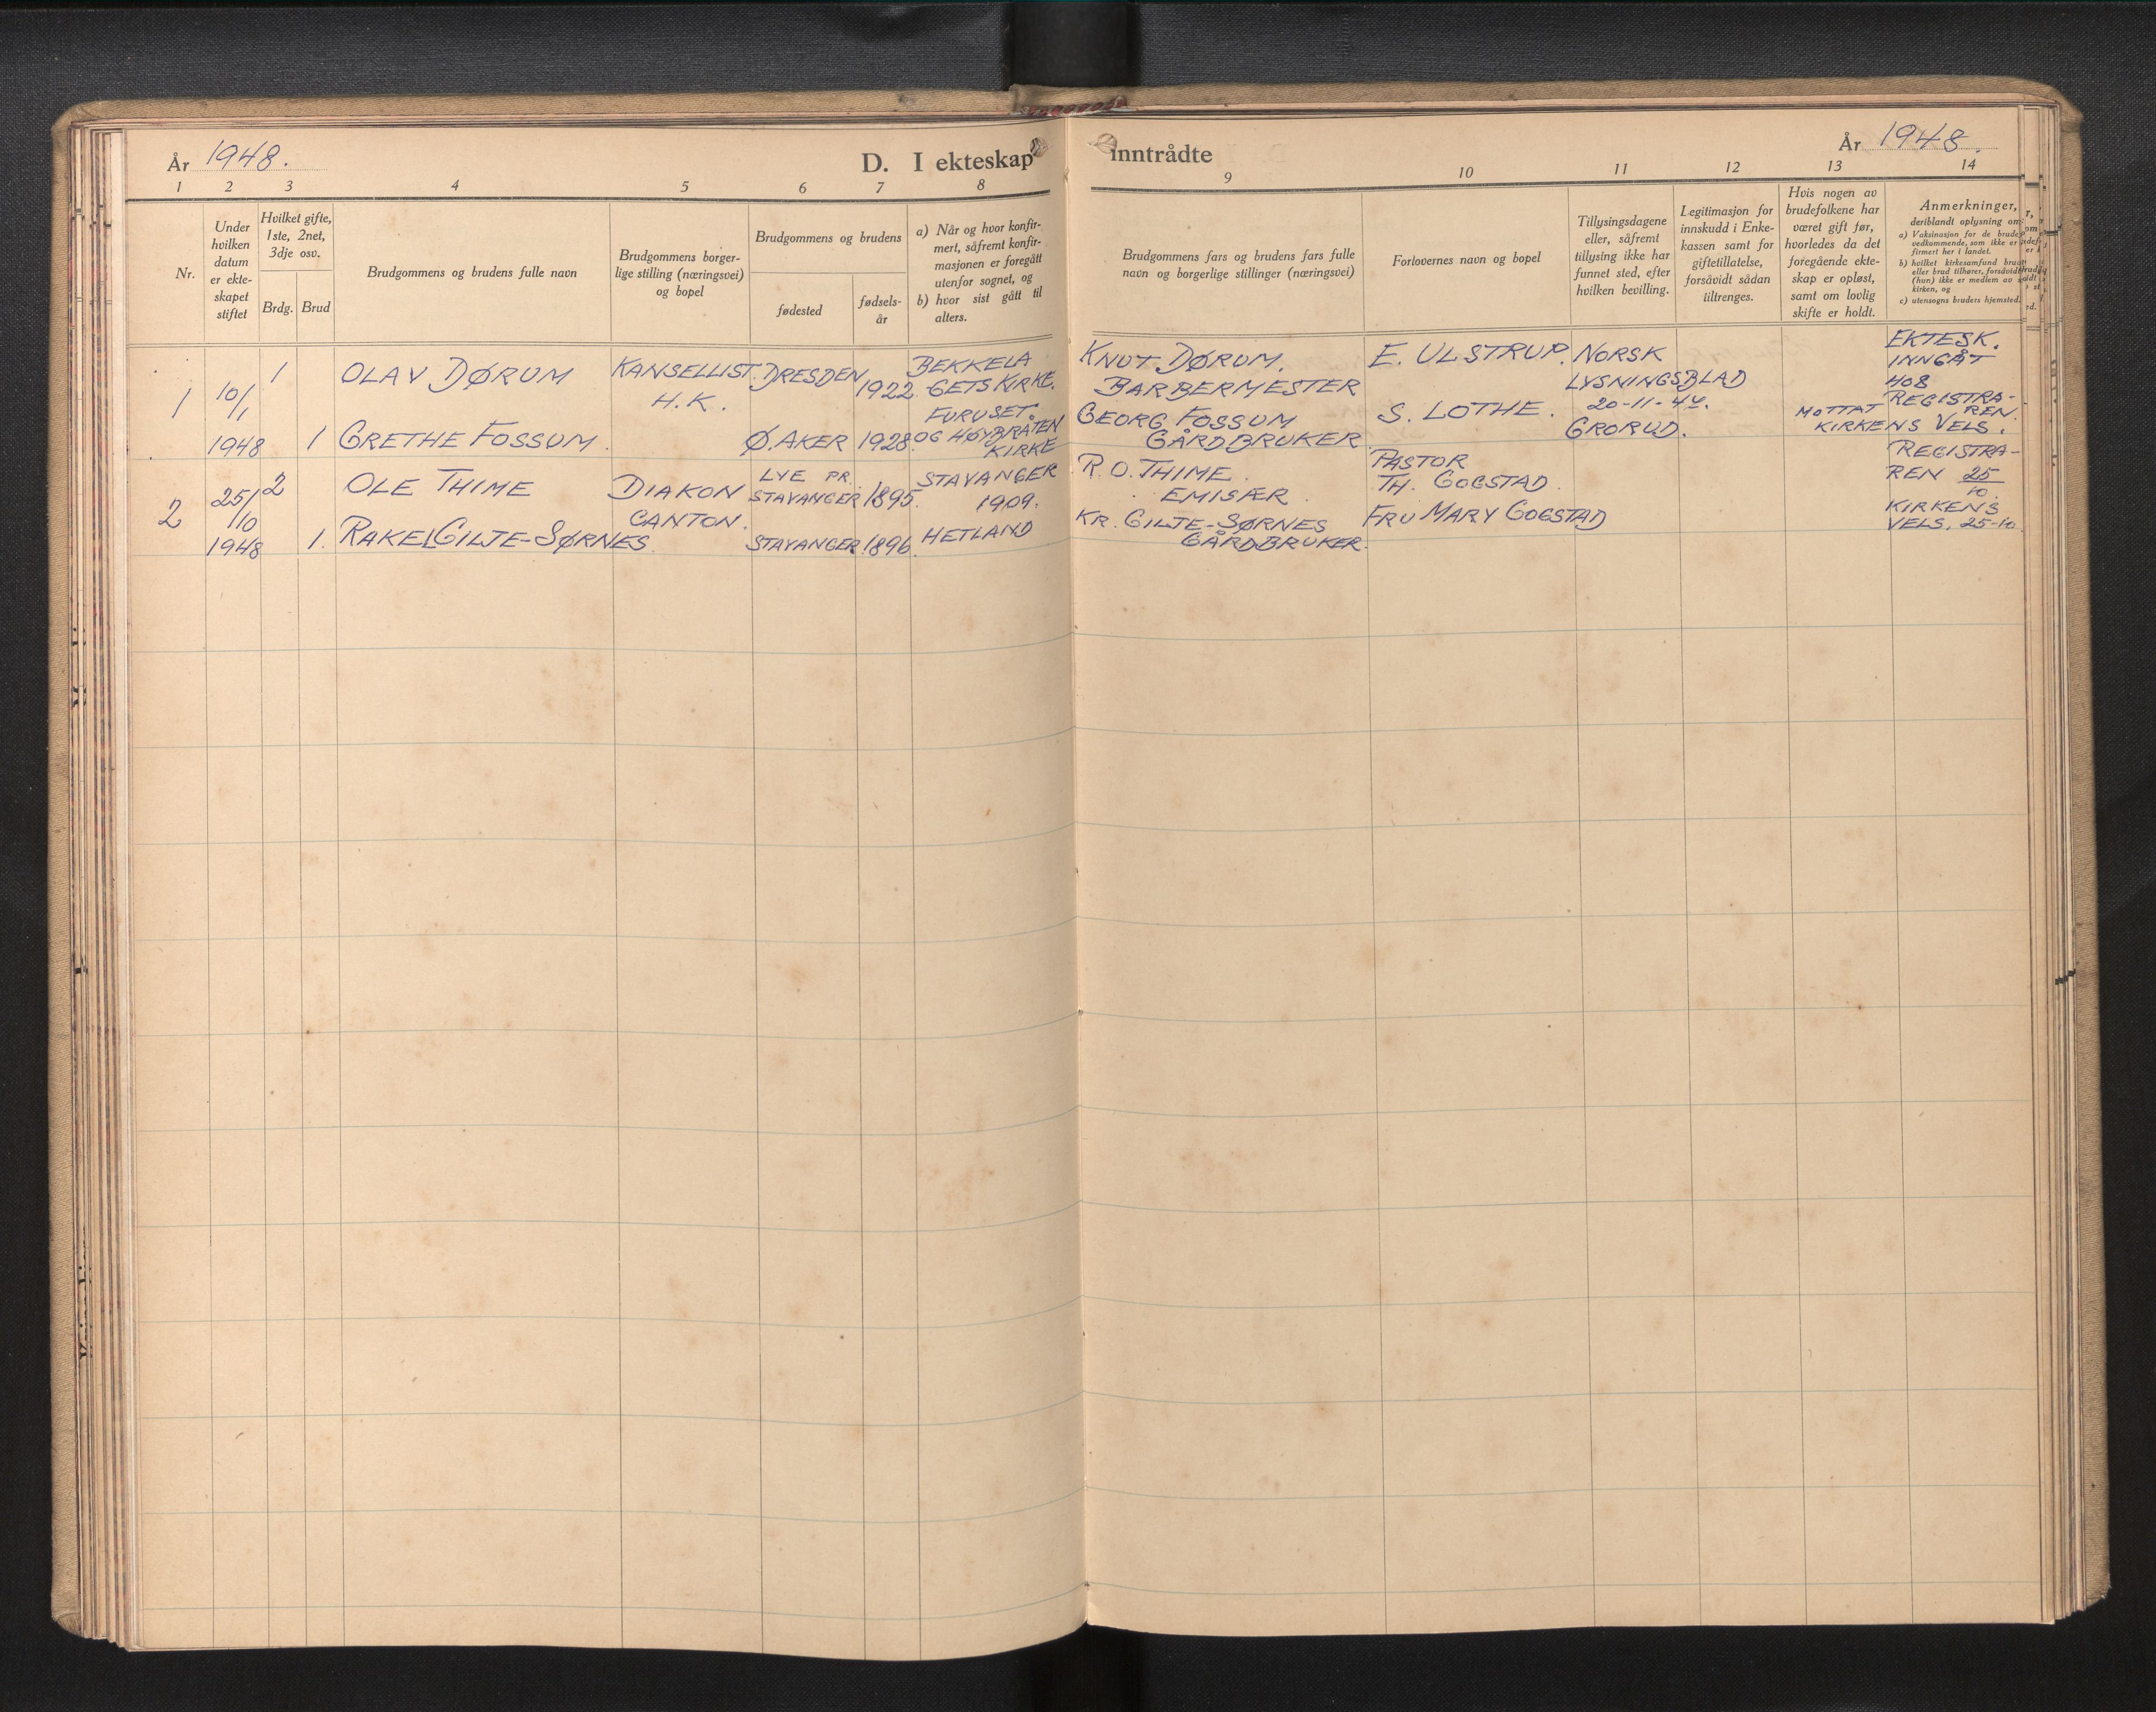 År 1948.
D. I ekteskap
1 2 3 4 5 6 7 8
Nr.
Under
hvilken
datum
er ekte-
skapet
stiftet
Hvilket gifte,
1ste, 2net,
3dje osv.
Brdg. Brud
Brudgommens og brudens fulle navn
Brudgommens borger-
lige stilling (næringsvei)
og bopel
Brudgommens og brudens
fødested
fødsels-
år
a) Når og hvor konfir-
mert, såfremt konfir-
masjonen er foregått
utenfor sognet, og
b) hvor sist gått til
alters.
1
10/1
1948
1
1
OLAV DØRUM
GRETHE FOSSUM.
KANSELLIST.
H.K.
DRESDEN
Ø. AKER
1922.
1928.
BEKKELA
GETS KIRKE.
FURUSET.
OG HØYBRÅTEN
KIRKE
2
25/10
1948
2
1.
OLE THIME
RAKEL GILJE-SØRNES
DIAKON
CANTON.
LYE PR.
STAVANGER
STAVANGER
1895.
1896.
STAVANGER
1909.
HETLAND
inntrådte
År 1948.
9 10 11 12 13 14
Brudgommens fars og brudens fars fulle
navn og borgerlige stillinger (næringsvei)
Forlovernes navn og bopel
Tillysingsdagene
eller, såfremt
tillysing ikke har
funnet sted, efter
hvilken bevilling.
Legitimasjon for
innskudd i Enke-
kassen samt for
giftetillatelse,
forsåvidt sådan
tiltrenges.
Hvis nogen av
brudefolkene har
været gift før,
hvorledes da det
foregående ekte-
skap er opløst,
samt om lovlig
skifte er holdt.
Anmerkninger,
deriblandt oplysning om:
a) Vaksinasjon for de brude
vedkommende, som ikke er
firmert her i landet.
b) hvilket kirkesamfund brud
eller brud tilhører, forsåvidt
(hun) ikke er medlem av
kirken, og
c) utensogns bruders hjemsted.
KNUT DØRUM.
BARBERMESTER
GEORG FOSSUM
GÅRDBRUKER.
E. ULSTRUP.
S. LOTHE.
NORSK
LYSNINGSBLAD
GRORUD.
EKTESK.
INNGÅT
HOS
REGISTRA-
REN.
MOTTAT
KIRKENS VELS.
R. O. THIME.
EMISÆR.
KR. GILJE-SØRNES
GÅRDBRUKER.
PASTOR
TH. GOGSTAD.
FRU MARY GOGSTAD
REGISTRA-
REN 25/10.
KIRKENS
VELS. 25-10